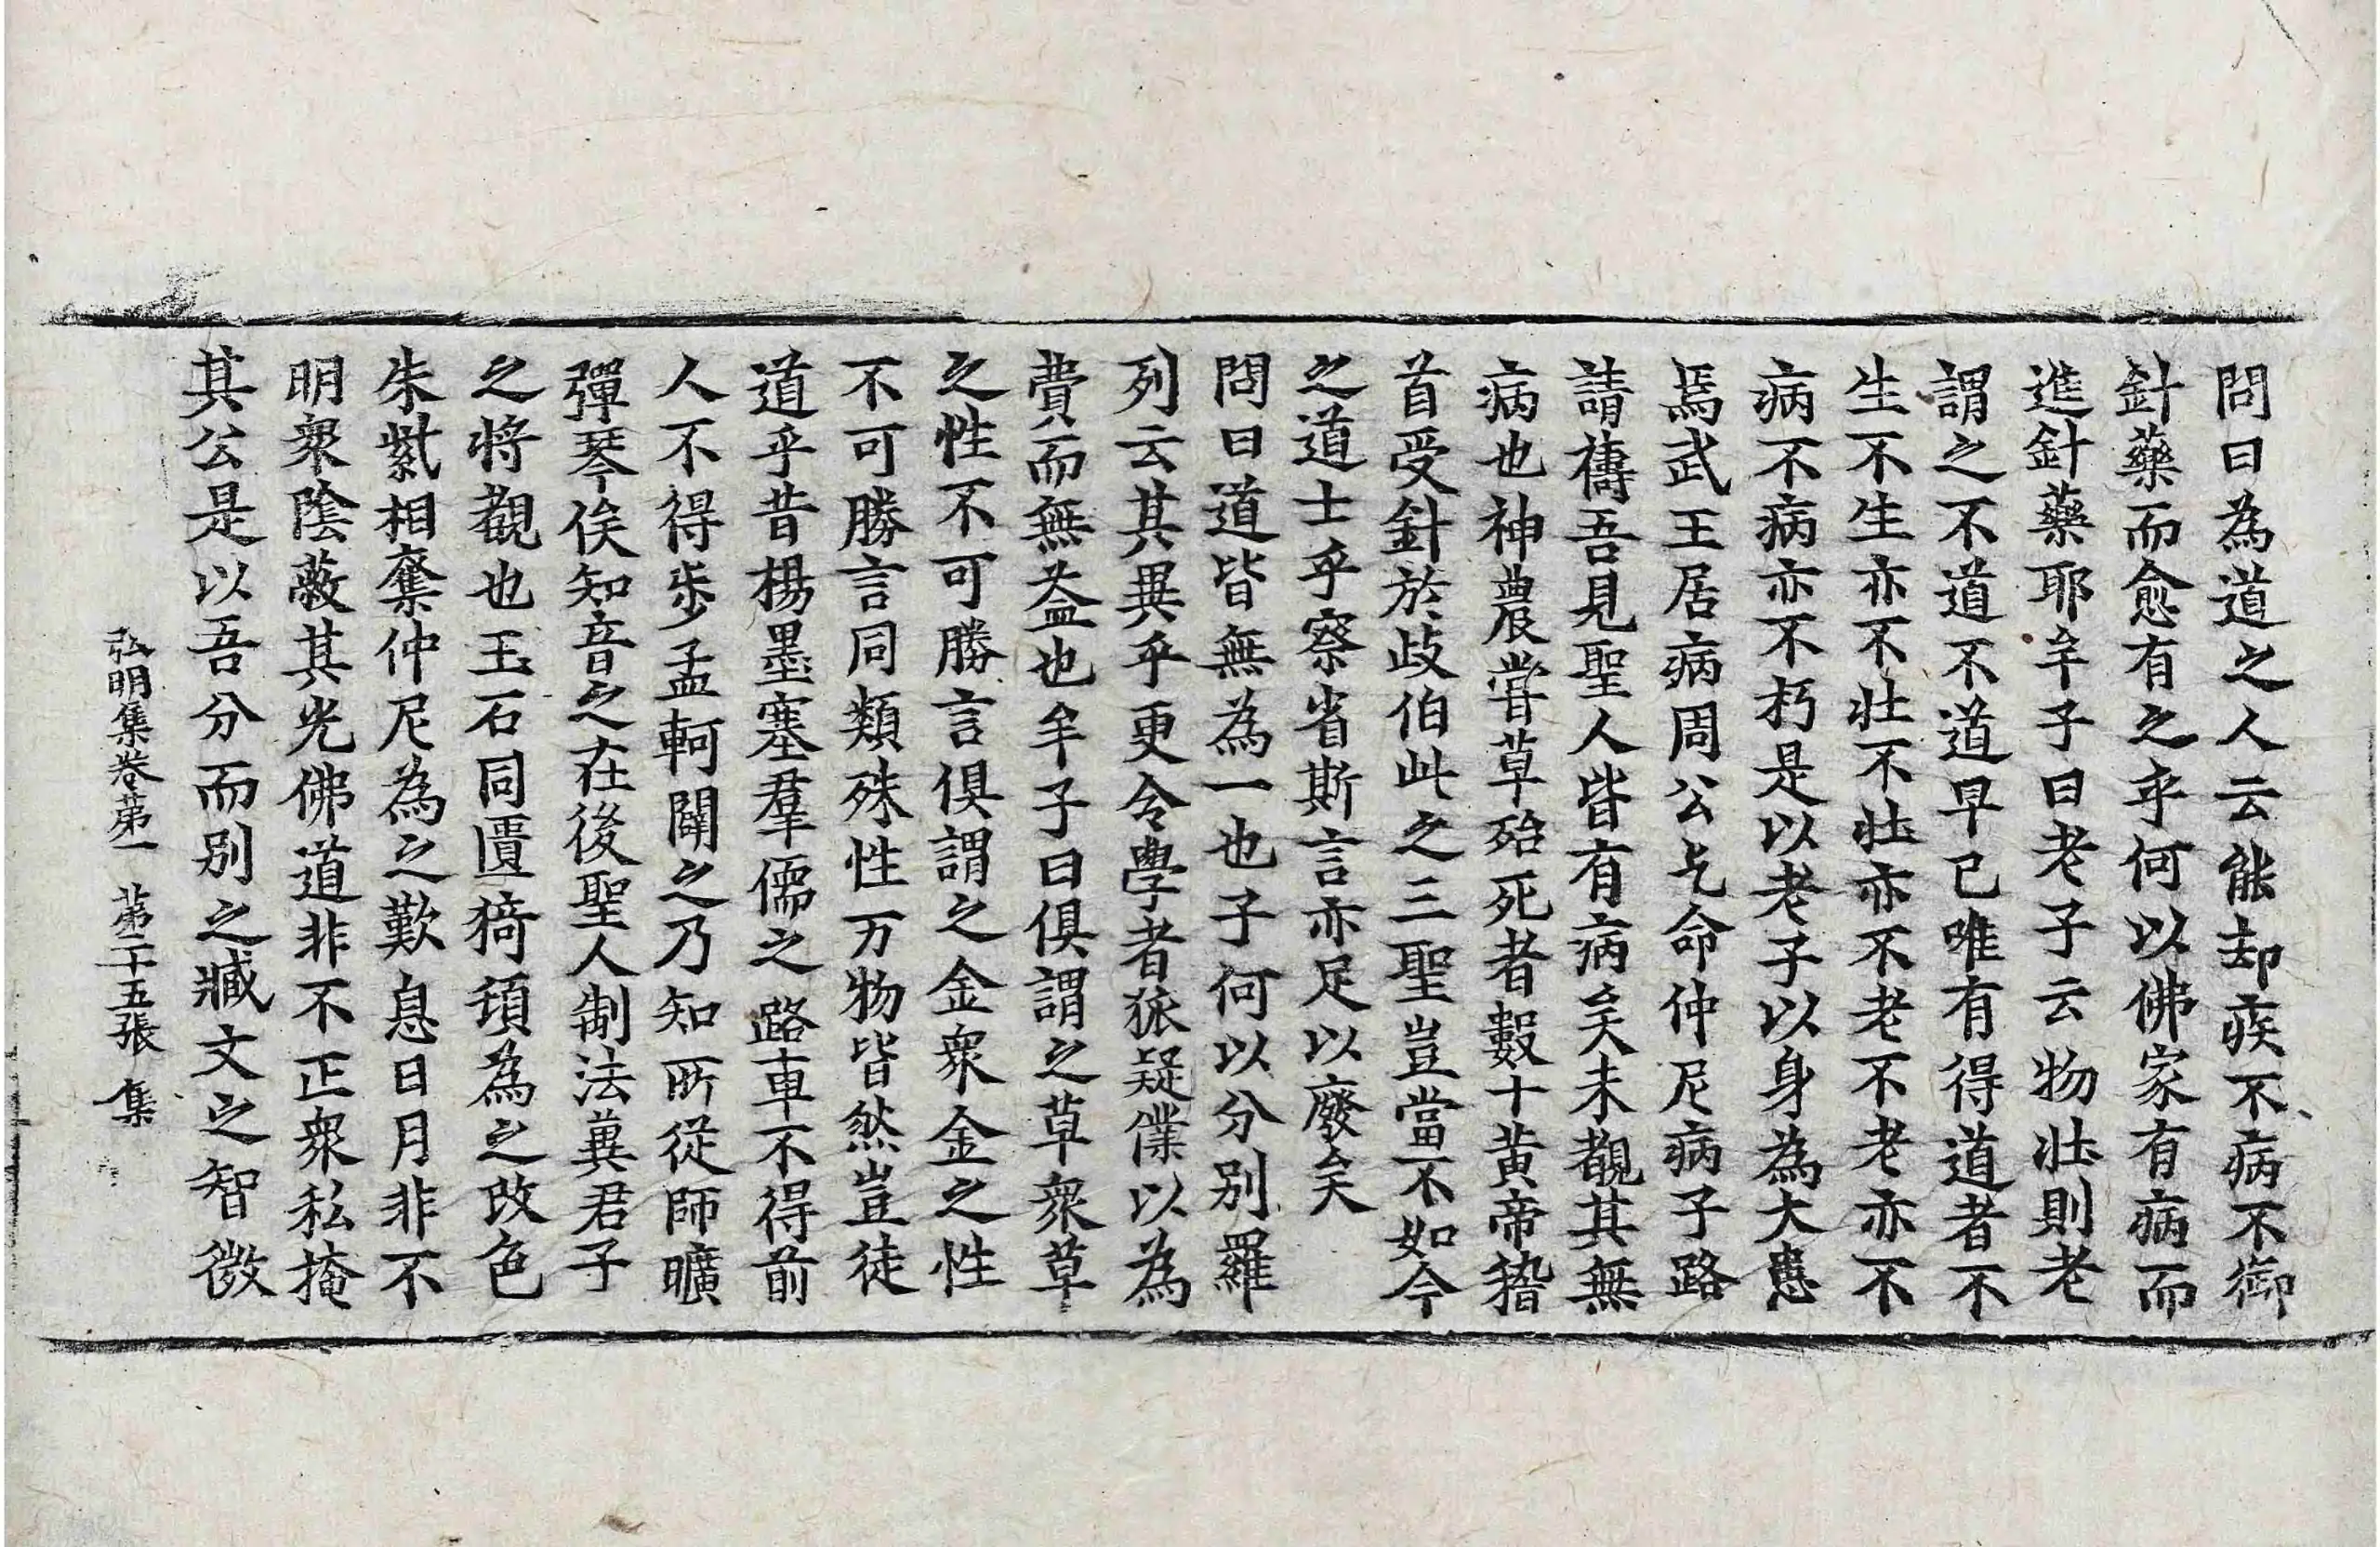 問曰為道之人云能却疾不病不御
針藥而愈有之乎何以佛家有病而
進針藥耶牟子曰老子云物壯則老
謂之不道不道早已唯有得道者不
生不生亦不壯不壯亦不老不老亦不
病不病亦不朽是以老子以身為大患
焉武王居病周公乞命仲尼病子路
請禱吾見聖人皆有病矣未覩其無
病也神農甞草殆死者數十黃帝𥡴
首受針於歧伯此之三聖豈當不如今
之道士乎察省斯言亦足以廢矣
問曰道皆無為一也子何以分別羅
列云其異乎更令學者狐疑僕以為
費而無益也牟子曰俱謂之草衆草
之性不可勝言俱謂之金衆金之性
不可勝言同類殊性万物皆然豈徒
道乎昔楊墨塞羣儒之路車不得前
人不得步孟軻闢之乃知所從師曠
彈琴俟知音之在後聖人制法冀君子
之將觀也玉石同匱猗頓為之改色
朱紫相奪仲尼為之歎息日月非不
明衆陰蔽其光佛道非不正衆私掩
其公是以吾分而別之臧文之智微
弘明集卷第一 第二十五張 集